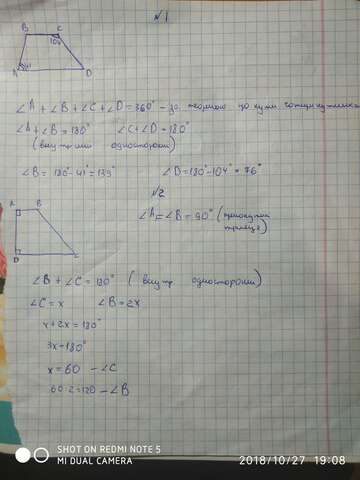 №1
B C
104°
A 41° D
∠A + ∠B + ∠C + ∠D = 360° - за теоремою про суму
∠A + ∠B = 180° ∠C + ∠D = 180°
(внутрішні односторонні)
∠B = 180° - 41° = 139° ∠D = 180° - 104° = 76°
№2
A B
∠A = ∠B = 90° (прямокутна
трапеція)
D C
∠B + ∠C = 180° (внутр односторонні)
∠C = x ∠B = 2x
x + 2x = 180°
3x = 180°
x = 60 - ∠C
60·2 = 120 - ∠B
SHOT ON REDMI NOTE 5
MI DUAL CAMERA
2018/10/27 19:08